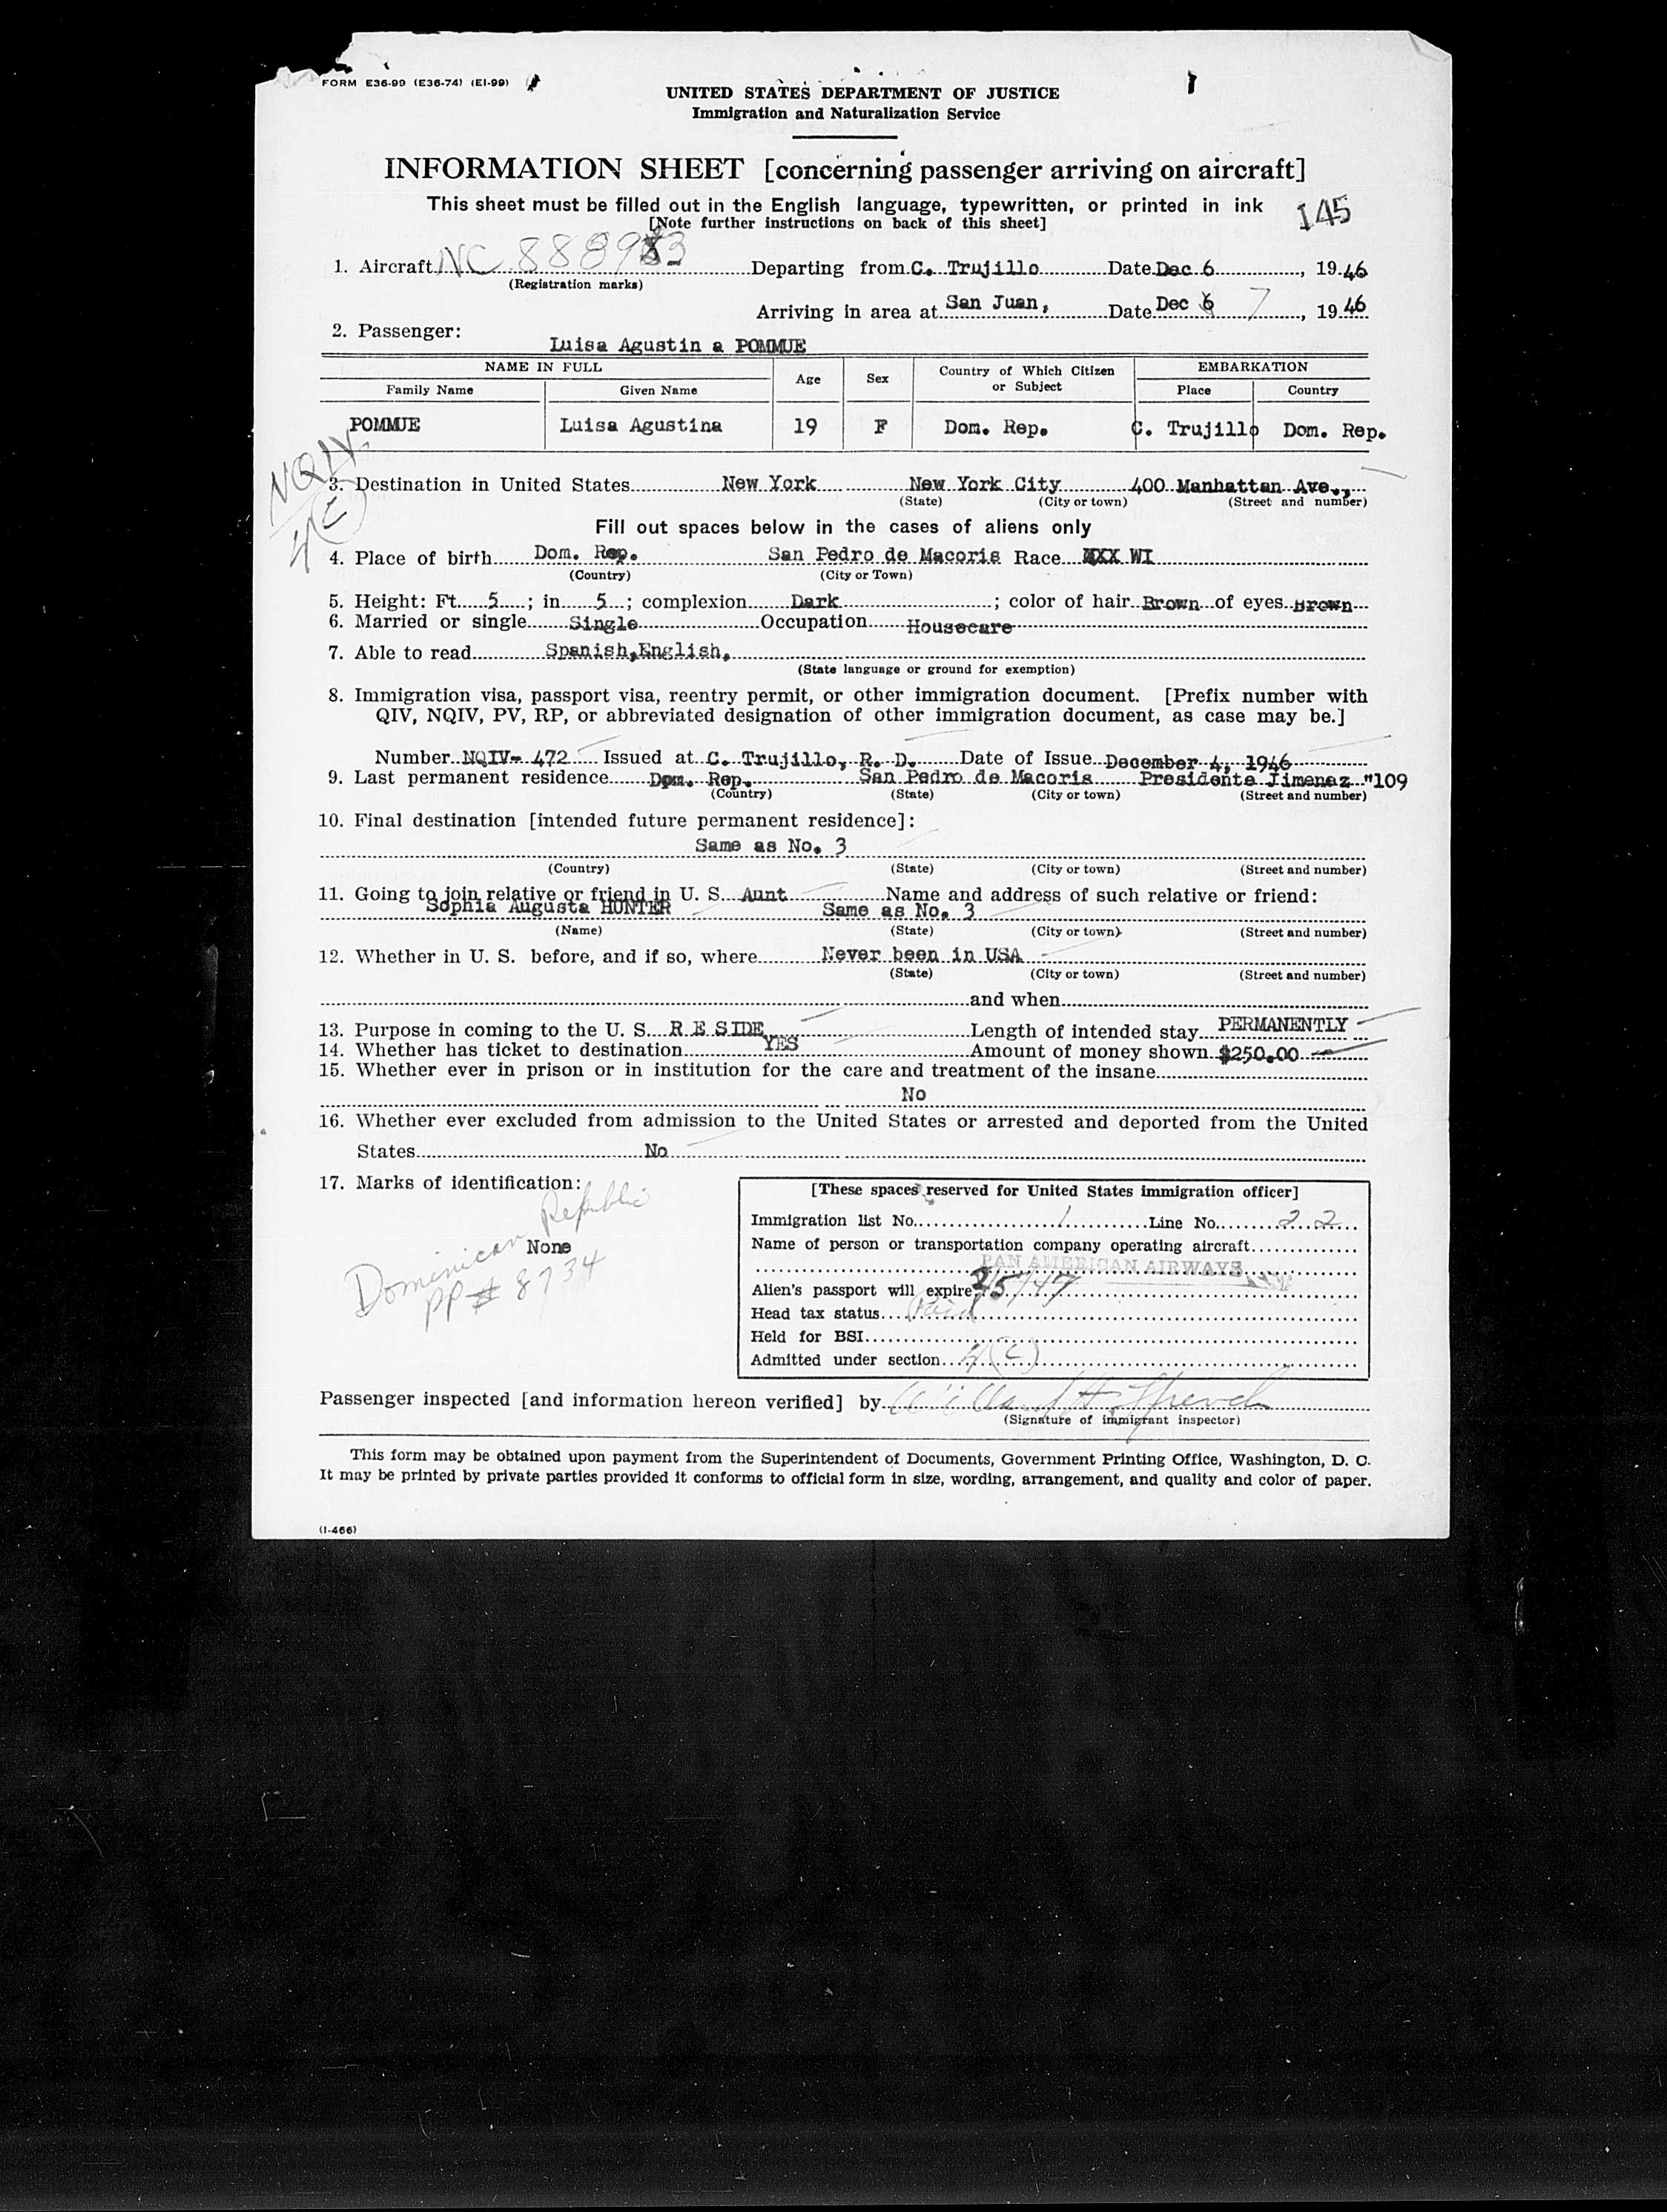 FORM E36-99 (E36-74) (E1-99)
UNITED STATES DEPARTMENT OF JUSTICE
Immigration and Naturalization Service
INFORMATION SHEET [concerning passenger arriving on aircraft]
This sheet must be filled out in the English language, typewritten, or printed in ink
145
[Note further instructions on back of this sheet]
1. Aircraft NC 88893 Departing from C. Trujillo Date Dec 6, 1946
(Registration marks)
Arriving in area at San Juan, Date Dec 7, 1946
2. Passenger:
Luisa Agustin a POMMUE
NAME IN FULL Age Sex Country of Which Citizen or Subject EMBARKATION
Family Name Given Name Place Country
POMMUE Luisa Agustina 19 F Dom. Rep. C. Trujillo Dom. Rep.
NQIV
4(c)
3. Destination in United States New York New York City 400 Manhattan Ave.,
(State) (City or town) (Street and number)
Fill out spaces below in the cases of aliens only
4. Place of birth Dom. Rep. San Pedro de Macoris Race XXX WI
(Country) (City or Town)
5. Height: Ft. 5; in 5; complexion Dark; color of hair Brown of eyes Brown
6. Married or single Single Occupation Housecare
7. Able to read Spanish,English,
(State language or ground for exemption)
8. Immigration visa, passport visa, reentry permit, or other immigration document. [Prefix number with
QIV, NQIV, PV, RP, or abbreviated designation of other immigration document, as case may be.]
Number NQIV- 472 Issued at C. Trujillo, R. D. Date of Issue December 4, 1946
9. Last permanent residence Dom. Rep. San Pedro de Macoris Presidente Jimenez "109
(Country) (State) (City or town) (Street and number)
10. Final destination [intended future permanent residece]:
Same as No. 3
(Country) (State) (City or town) (Street and number)
11. Going to join relative or friend in U. S. Aunt Name and address of such relative or friend:
Sophia Augusta HUNTER Same as No. 3
(Name) (State) (City or town) (Street and number)
12. Whether in U. S. before, and if so, where Never been in USA
(State) (City or town) (Street and number)
and when
13. Purpose in coming to the U. S. R E S IDE Length of intended stay PERMANENTLY
14. Whether has ticket to destination YES Amount of money shown $250.00
15. Whether ever in prison or in institution for the care and treatment of the insane
No
16. Whether ever excluded from admission to the United States or arrested and deported from the United
States No
17. Marks of identification:
None
Dominican Republic
PP# 8734
[These spaces reserved for United States immigration officer]
Immigration list No. 1 Line No. 22
Name of person or transportation company operating aircraft
PAN AMERICAN AIRWAYS
Alien's passport will expire 2/5/47
Head tax status Paid
Held for BSI
Admitted under section 4(c)
Passenger inspected [and information hereon verified] by
(Signature of immigrant inspector)
This form may be obtained upon payment from the Superintendent of Documents, Government Printing Office, Washington, D. C.
It may be printed by private parties provided it conforms to official form in size, wording, arrangement, and quality and color of paper.
(1-466)